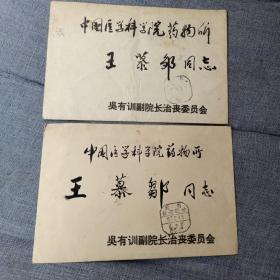 中国医学科学院药物所
王慕邹同志
吴有训副院长治丧委员会
中国医学科学院药物所
王慕鄒同志
吴有训副院长治丧委员会